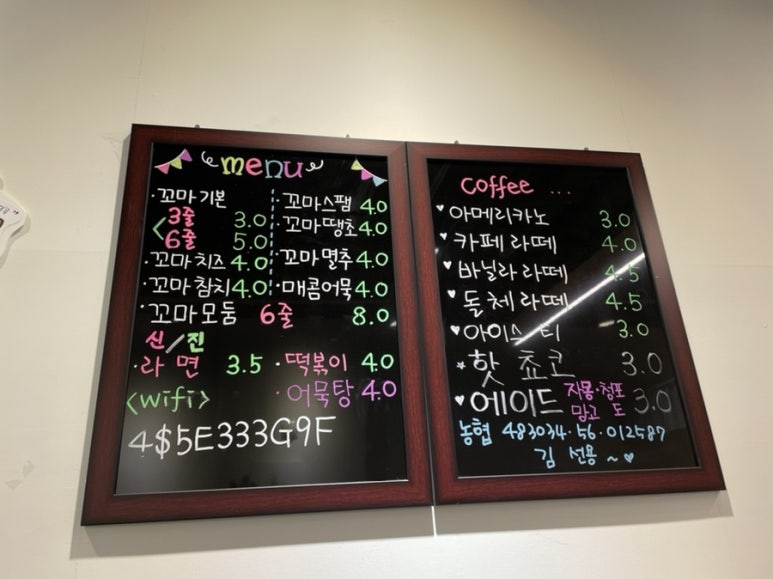 menu
·꼬마기본
3줄 3.0
6줄 5.0
·꼬마치즈 4.0
·꼬마참치 4.0
·꼬마모둠 6줄 8.0
·꼬마스팸 4.0
·꼬마땡초 4.0
·꼬마멸추 4.0
·매콤어묵 4.0
신/진
·라면 3.5
·떡볶이 4.0
·어묵탕 4.0
<wifi>
4$5E333G9F
coffee ...
♥아메리카노 3.0
♥카페라떼 4.0
♥바닐라라떼 4.5
♥돌체라떼 4.5
♥아이스티 3.0
★핫쵸코 3.0
♥에이드 자몽·청포 망고 도 3.0
농협 483034·56·012587
김선용~♥